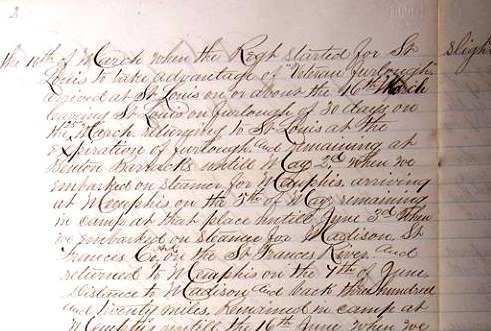 2
the 10th of March when the Regt started for St slight
Louis to take advantage of "Veteran furlough"
arrived at St Louis on or about the 16th March
leaving St Louis on furlough of 30 days on
the March returning to St Louis at the
expiration of furlough and remaining at
Benton Barracks untill May 2d when we
embarked on steamer for Memphis, arriving
at Memphis on the 5th of May remaining
in camp at that place untill June 3rd when
we embarked on steamer for Madison, St
Frances Co. on the St Frances River, and
returned to Memphis on the 7th of June
Distance to Madison and back three hundred
and twenty miles. Remained in camp at
Memphis untill the 16th June when we